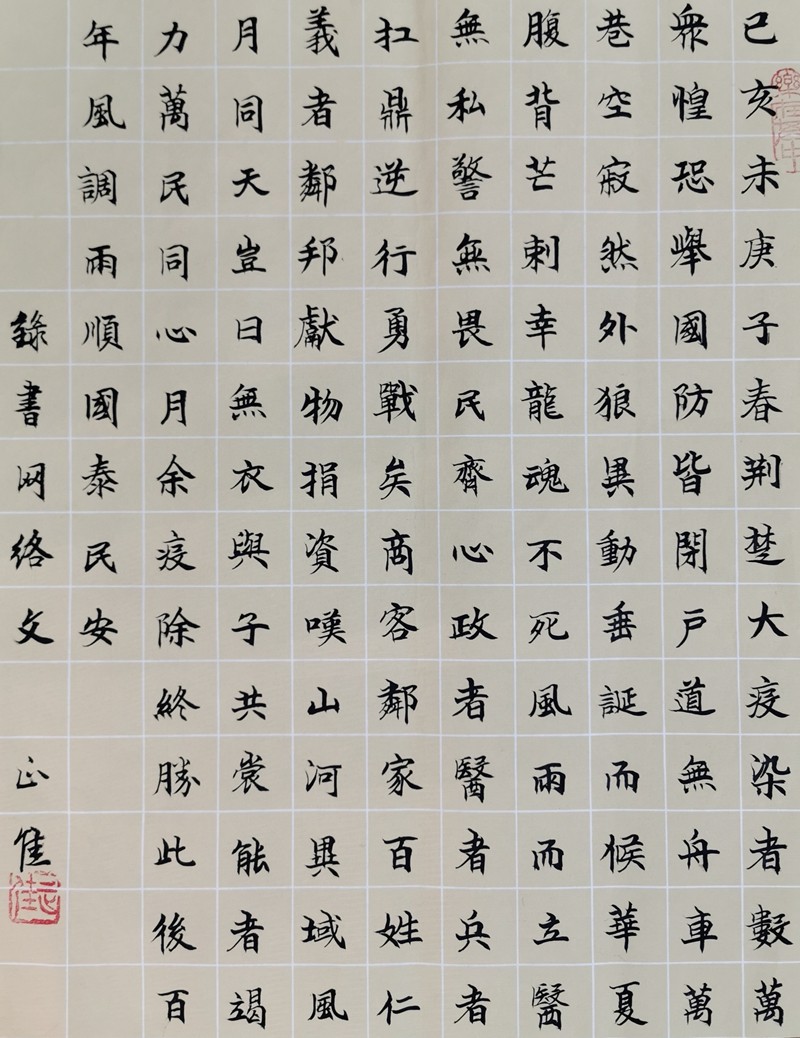 己亥末庚子春荆楚大疫染者數萬
衆惶恐舉國防皆閉戶道無舟車萬
巷空寂然外狼異動垂誕而候華夏
腹背芒刺幸龍魂不死風雨而立醫
無私警無畏民齊心政者醫者兵者
扛鼎逆行勇戰矣商客鄰家百姓仁
義者鄰邦獻物捐資嘆山河異域風
月同天豈曰無衣與子共裳能者竭
力萬民同心月余疫除終勝此後百
年風調雨順國泰民安
錄書网络文 正隹